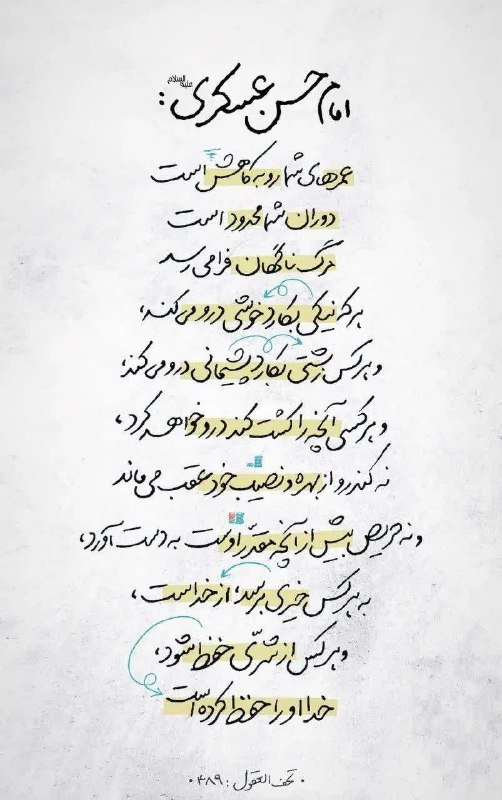 امام حسن عسکری علیه‌السلام :
عمرهای شما رو به کاهش است
دوران شما محدود است
مرگ ناگهان فرا می رسد
هر که نیکی بکارد خوشی درو می کند،
و هر کس زشتی بکارد پشیمانی درو می کند،
و هر کسی آنچه را کشت کند درو خواهد کرد،
نه کندرو از بهره و نصیب خود عقب می ماند
و نه حریص بیش از آنچه مقدّر اوست به دست آورد،
به هر کس خیری برسد، از خداست،
و هر کس از شرّی حفظ شود،
خدا او را حفظ کرده است
۰ تحف العقول : ۴۸۹ ۰